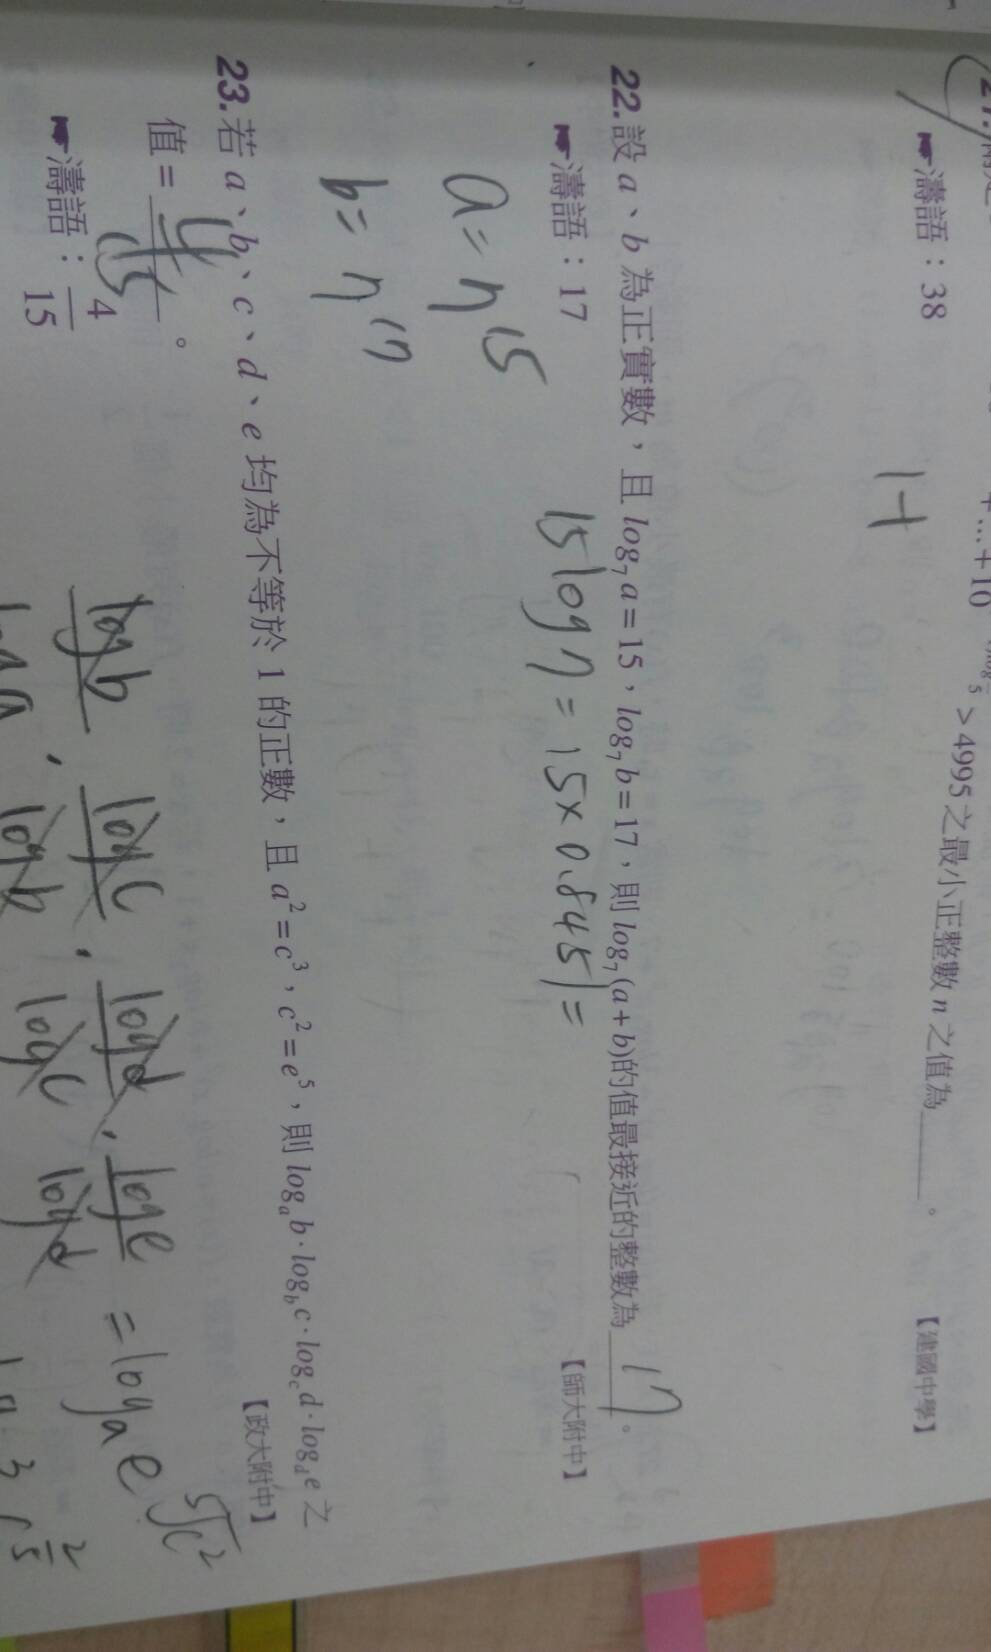 +…+10
>4995之最小正整數 n 之值為____。
【建國中學】
☛濤語：38
1+
22.設 a、b 為正實數，且 log₇a=15，log₇b=17，則 log₇(a+b)的值最接近的整數為 17 。
【師大附中】
☛濤語：17
15 log 7 = 15 × 0.8451 =
a = 7¹⁵
b = 7¹⁷
23.若 a、b、c、d、e 均為不等於 1 的正數，且 a²=c³，c²=e⁵，則 logₐb·log_b c·log_c d·log_d e 之
值= 4/15 。
【政大附中】
☛濤語：4/15
log b/log a · log c/log b · log d/log c · log e/log d = logₐe
⁵√c²